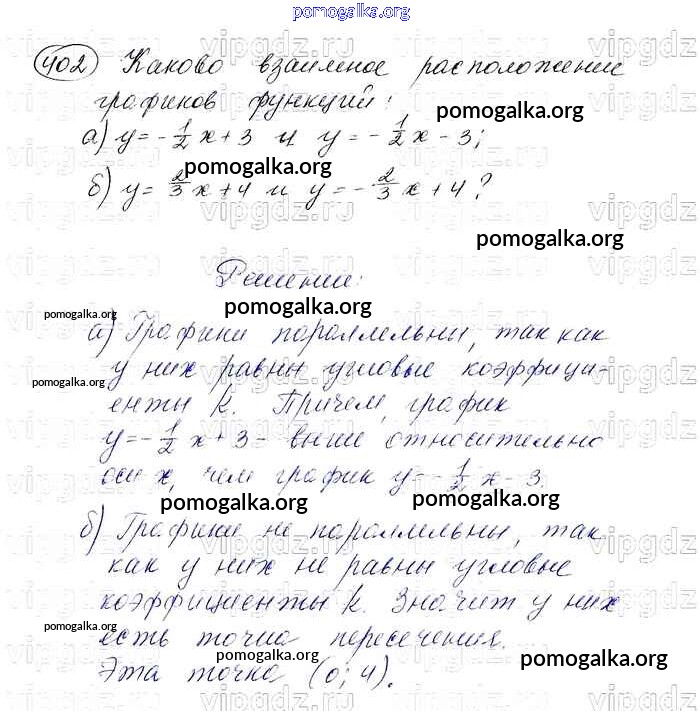 pomogalka.org
402 Каково взаимное расположение
графиков функций:
pomogalka.org
а) y = -1/2 x + 3 и y = -1/2 x - 3;
pomogalka.org
б) y = 2/3 x + 4 и y = -2/3 x + 4?
pomogalka.org
Решение:
pomogalka.org
pomogalka.org
а) Графики параллельны, так как
у них равны угловые коэффици-
pomogalka.org
енты k. Причем, график
y = -1/2 x + 3 - выше относительно
оси x, чем график y = -1/2 x - 3.
pomogalka.org
pomogalka.org
б) Графики не параллельны, так
как у них не равны угловые
коэффициенты k. Значит у них
pomogalka.org
есть точка пересечения.
pomogalka.org
pomogalka.org
Эта точка (0; 4).